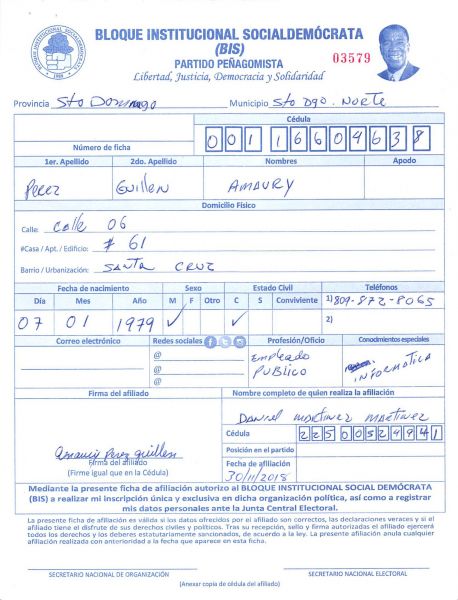 BLOQUE INSTITUCIONAL SOCIALDEMÓCRATA
(BIS)
PARTIDO PEÑAGOMISTA
Libertad, Justicia, Democracia y Solidaridad
03579
BLOQUE INSTITUCIONAL SOCIALDEMÓCRATA
Provincia Sto Domingo Municipio Sto Dgo. Norte
Cédula
Número de ficha 001 1660463 8
1er. Apellido 2do. Apellido Nombres Apodo
Perez Guillen AMAURY
Domicilio Físico
Calle: Calle 06
#Casa / Apt. / Edificio: # 61
Barrio / Urbanización: SANTA CRUZ
Fecha de nacimiento Sexo Estado Civil Teléfonos
Día Mes Año M F Otro C S Conviviente 1) 809-872-8065
07 01 1979 ✓ ✓ 2)
Correo electrónico Redes sociales Profesión/Oficio Conocimientos especiales
@ Empleado
@ Publico INFORMATICA
@
Firma del afiliado Nombre completo de quien realiza la afiliación
Daniel Martinez Martinez
Cédula 225 0052494 1
Amaury Perez Guillen Posición en el partido
Firma del afiliado Fecha de afiliación
(Firme igual que en la Cédula) 30/11/2018
Mediante la presente ficha de afiliación autorizo al BLOQUE INSTITUCIONAL SOCIAL DEMÓCRATA
(BIS) a realizar mi inscripción única y exclusiva en dicha organización política, así como a registrar
mis datos personales ante la Junta Central Electoral.
La presente ficha de afiliación es válida si los datos ofrecidos por el afiliado son correctos, las declaraciones veraces y si el
afiliado tiene el disfrute de sus derechos civiles y políticos. Tras su recepción, sello y firma autorizadas el afiliado ejercerá
todos los derechos y los deberes estatutariamente sancionados, de acuerdo a la ley. La presente afiliación anula cualquier
afiliación realizada con anterioridad a la fecha que aparece en esta ficha.
SECRETARIO NACIONAL DE ORGANIZACIÓN SECRETARIO NACIONAL ELECTORAL
(Anexar copia de cédula del afiliado)